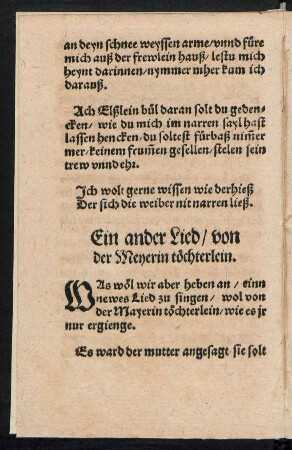 an deyn schnee weyssen arme/vnnd füre
mich auß der frewlein hauß/lestu mich
heynt darinnen/nymmer mher kum ich
darauß.
Ach Elßlein bůl daran solt du geden-
cken/wie du mich im narren sayl hast
lassen hencken/du soltest fürbaß nim̃er
mer/keinem frum̃en gesellen/stelen sein
trew vnnd ehr.
Ich wolt gerne wissen wie der hieß
Der sich die weiber nit narren ließ.
Ein ander Lied/von
der Meyerin töchterlein.
WAs wöl wir aber heben an/einn
newes Lied zu singen/wol von
der Mayerin töchterlein/wie es jr
nur ergienge.
Es ward der mutter angesagt sie solt